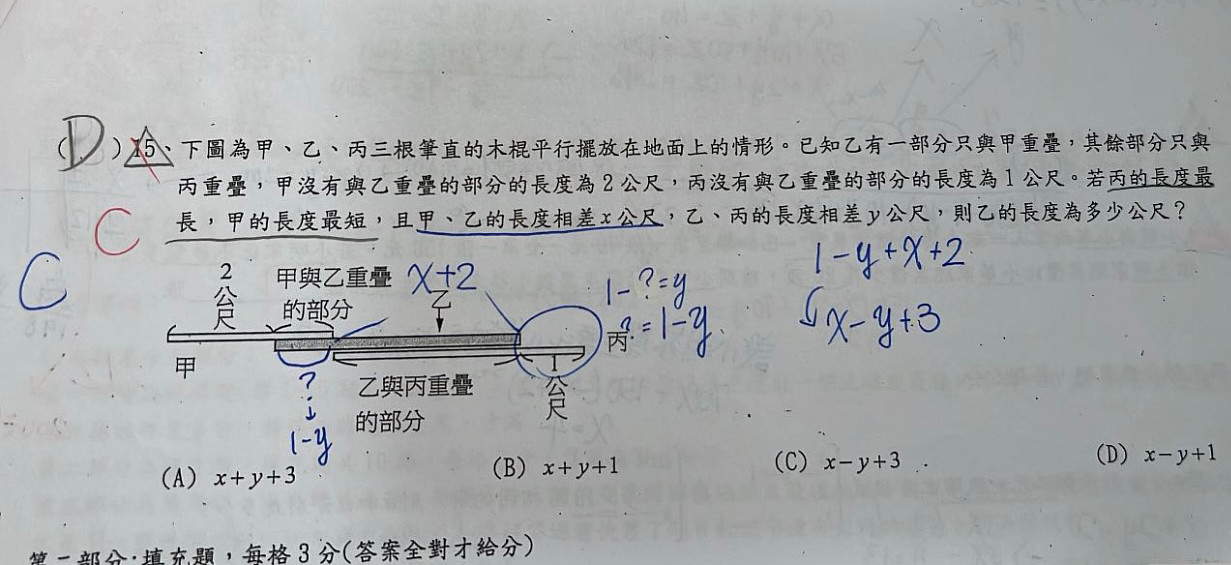 (D)15、下圖為甲、乙、丙三根筆直的木棍平行擺放在地面上的情形。已知乙有一部分只與甲重疊，其餘部分只與
丙重疊，甲沒有與乙重疊的部分的長度為2公尺，丙沒有與乙重疊的部分的長度為1公尺。若丙的長度最
長，甲的長度最短，且甲、乙的長度相差x公尺，乙、丙的長度相差y公尺，則乙的長度為多少公尺？
C
C
1-y+x+2
x-y+3
2公尺
甲與乙重疊
的部分
x+2
乙
1-?=y
?=1-y
丙
甲
?
1-y
乙與丙重疊
的部分
1公尺
(A) x+y+3
(B) x+y+1
(C) x-y+3
(D) x-y+1
第二部分:填充題，每格3分(答案全對才給分)